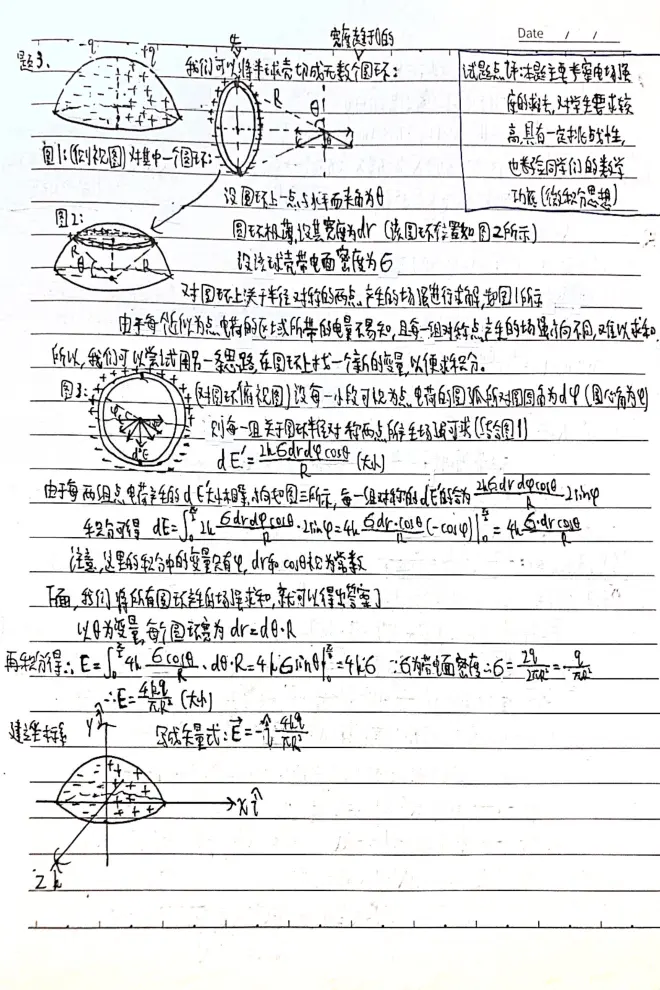 Date / /
题3.
-q +q
我们可以将半球壳切成无数个宽度趋于0的圆环:
R θ
试题点评:本题主要考察电场强
度的求法,对学生要求较
高,具有一定挑战性,
也考验同学们的数学
功底(微积分思想)
图1:(侧视图)对其中一个圆环:
设圆环上一点与水平面夹角为θ
图2:
R θ R
圆环极薄,设其宽度为dr(该圆环位置如图2所示)
设该球壳带电面密度为σ
对圆环上关于半径对称的两点产生的场强进行求解,如图1所示
由于每个近似为点电荷的区域所带的电量不易知,且每一组对称点产生的场强方向不同,难以求和.
所以,我们可以尝试用另一条思路,在圆环上找一个新的变量,以便求积分。
图3:
φ d'E
(对圆环俯视图)设每一小段可视为点电荷的圆弧所对圆心角为dφ(圆心角为φ)
则每一组关于圆环半径对称两点所产生场强可求(结合图1)
dE'=2kσdrdφcosθ/R (大小)
由于每两组点电荷产生的dE'大小相等,方向如图三所示,每一组对称的dE'的合为 2kσdrdφcosθ/R · 2sinφ
积分可得 dE=∫₀^(π/2) 2k σdrdφcosθ/R · 2sinφ=4k σdr·cosθ/R (-cosφ)|₀^(π/2) = 4k σ·dr cosθ/R
注意,这里的积分中的变量只有φ,dr和cosθ视为常数
下面,我们将所有圆环产生的场强求和,就可以得出答案了
以θ为变量,每个圆环宽为dr=dθ·R
再积分得:E=∫₀^(π/2) 4k σcosθ/R · dθ·R=4kσsinθ|₀^(π/2)=4kσ ∵σ为带电面密度∴σ=2q/2πR²=q/πR²
∴E=4kq/πR² (大小)
建立坐标系
写成矢量式:E⃗=-î 4kq/πR²
y ĵ
x î
z k̂